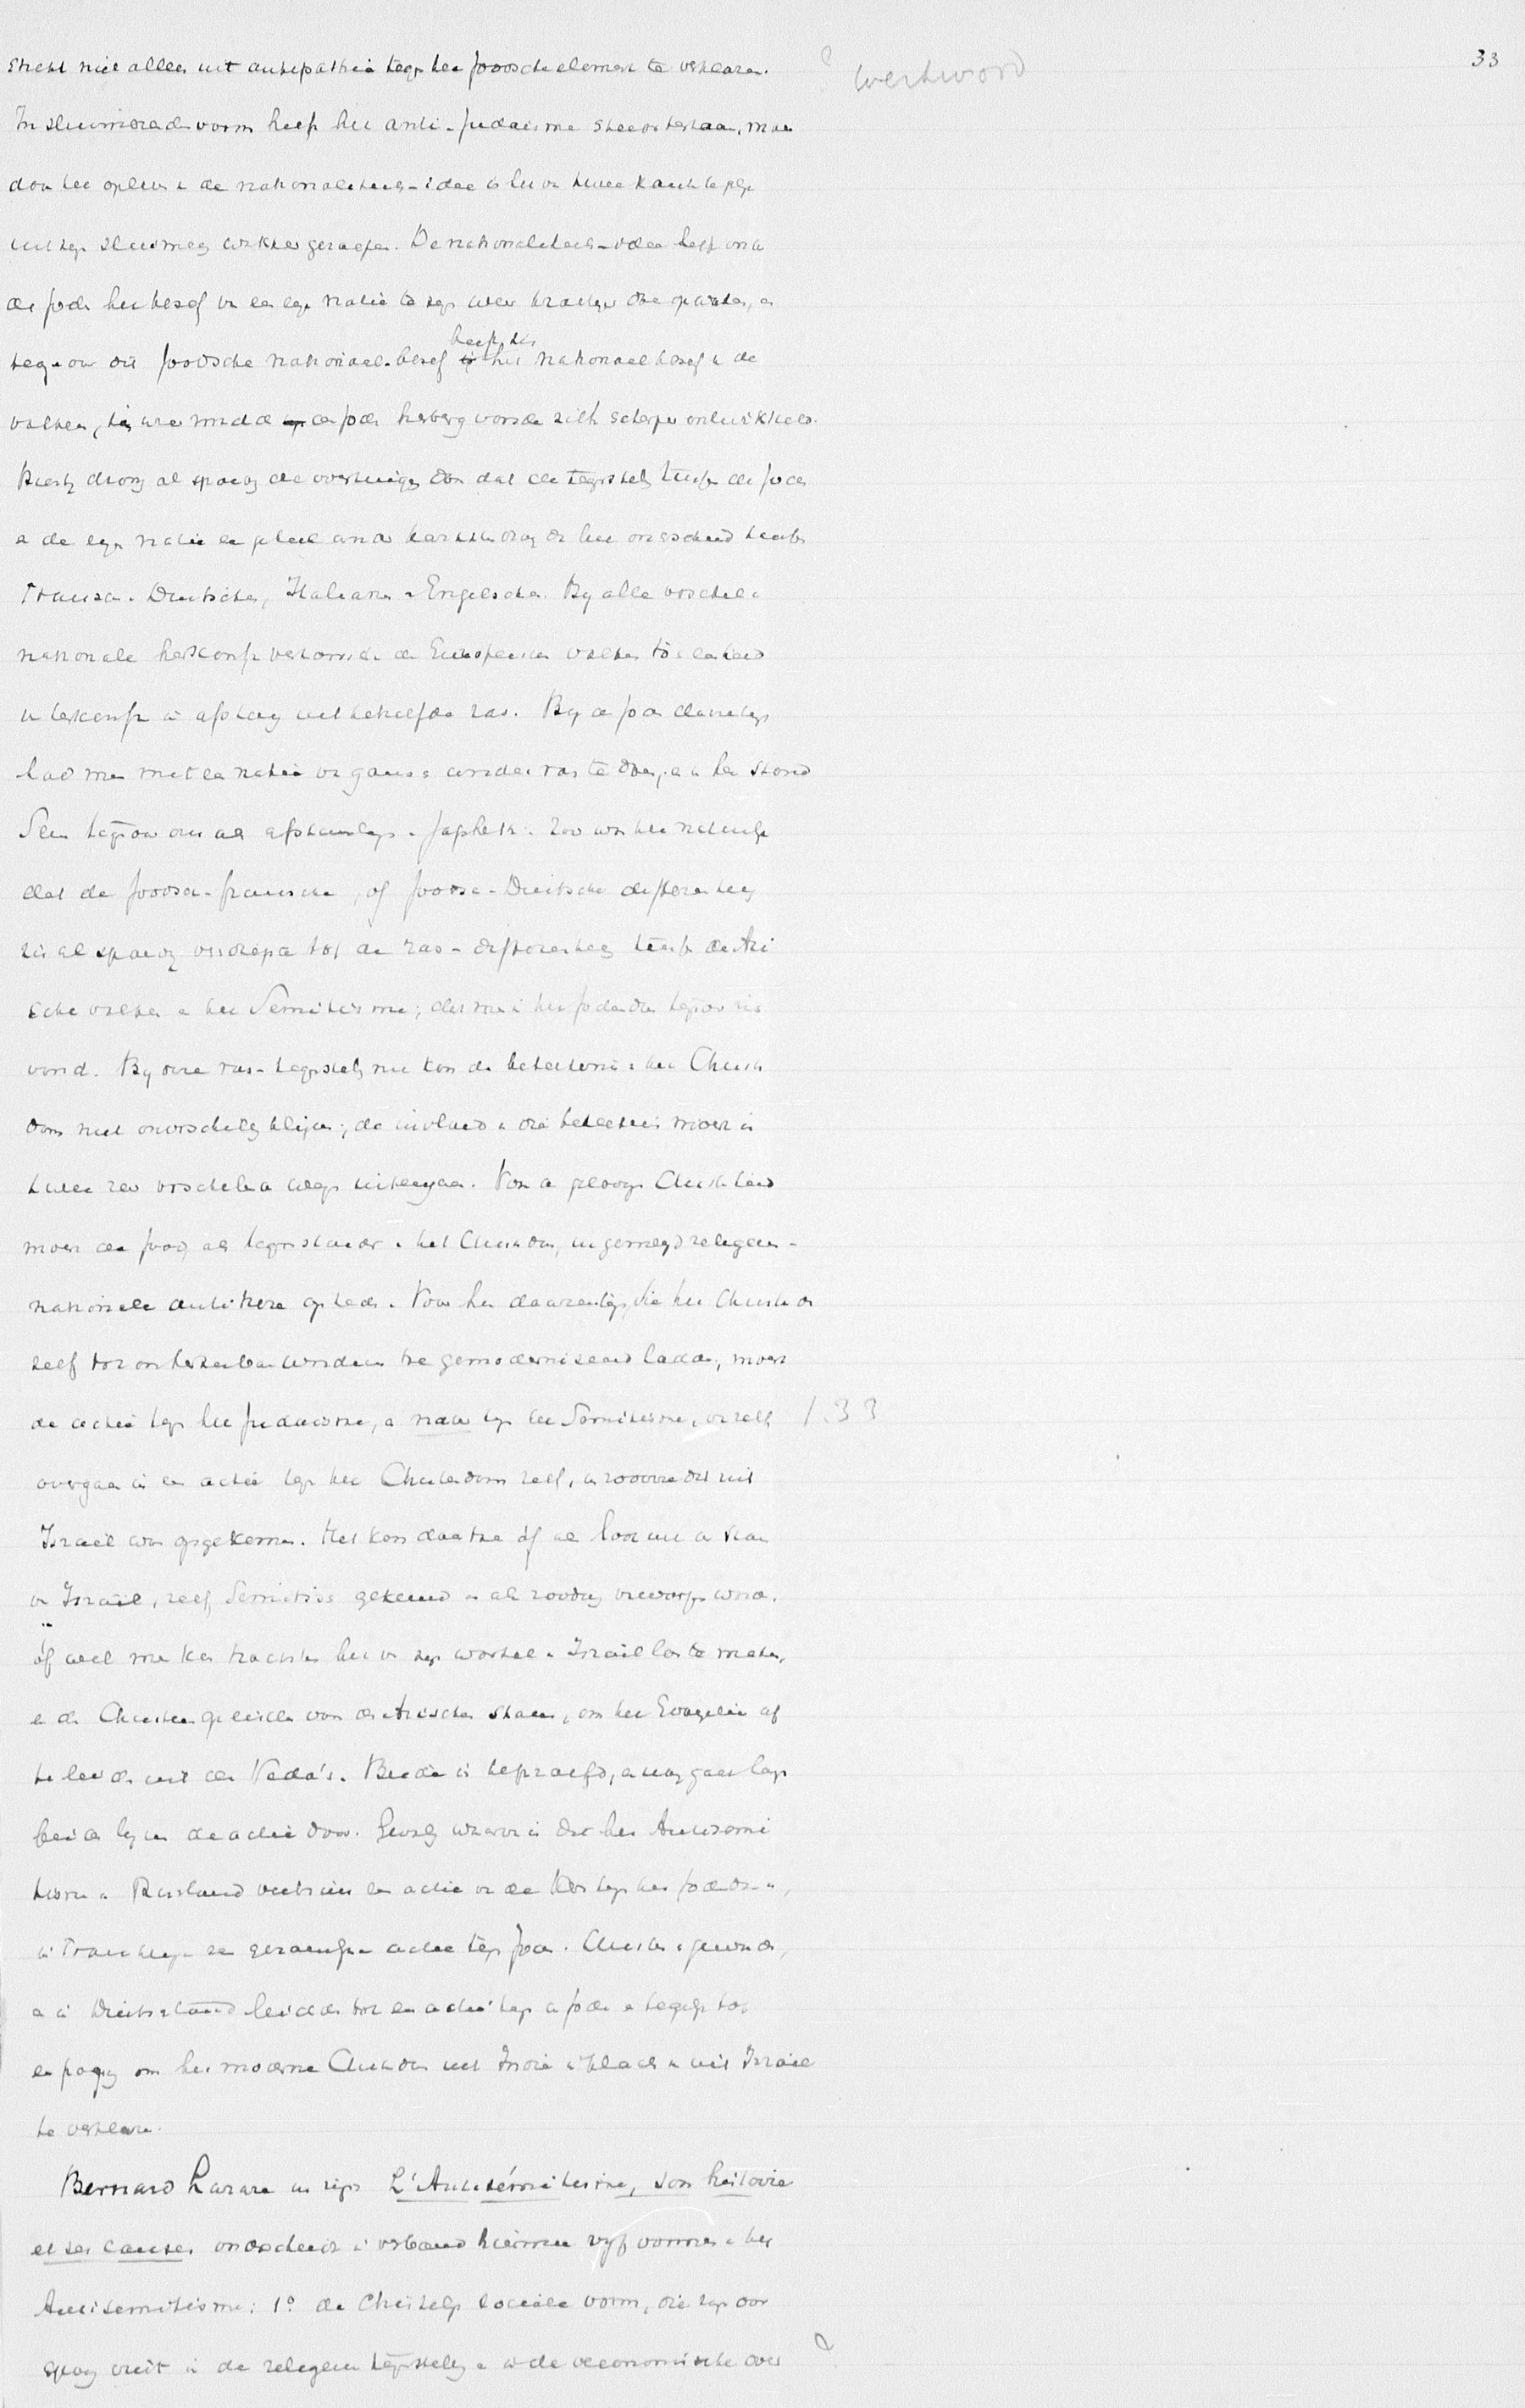 33
strekt niet alleen uit antipathie tegen het joodsche element te verklaren.
In sluimerenden vorm heeft het anti-judaisme steeds bestaan, maar
door het opleven de nationaliteits-idee is het van twee kanten tegelijk
uit zijn sluimering wakker geroepen. De nationaliteits-idee heeft onder
de joden het besef van een eigen natie te zijn weer krachtiger doen opwaken, en
tegenover dit joodsche nationaal-besef heeft zich het nationaal besef in de
volken, in wier midden de joden herberg vonden zich scherper ontwikkeld.
drong al spoedig de overtuiging door dat de tegenstelling tusschen de joden
en de eigen natie een geheel ander karakter droeg dan het onderscheid tusschen
Franschen, Duitschers, Italianen en Engelschen. Bij alle verschil in
nationale herkomst vertoonden de Europeesche volken toch eenheid
van herkomst in afstamming uit hetzelfde ras. Bij de joden daarentegen
had men met een natie van gansch ander ras te doen, en het stond
Sem tegenover ons als afstammelingen Japheth. Zoo was het natuurlijk
dat de joodsch-fransche, of joodsch-Duitsche differentie
zich al spoedig verdiepte tot de ras-differentie tusschen de Ari
sche volken en het Semitisme; dat men in het jodendom tegenover zich
vond. Bij deze ras-tegenstelling nu kon de beteekenis van het Christen
dom niet onverschillig blijven; de invloed van die beteekenis moest in
twee zeer verschillende wegen uiteengaan. Voor de geloovige Christenheid
moest de jood, als tegenstander van het Christendom, gemengd religieus-
nationale antithese optreden. Voor hen daarentegen, die het Christendom
zelf tot onherkenbaar wordens toe gemoderniseerd hadden, moest
de actie tegen het judaisme, en nader tegen het Semitisme, vanzelf
1.33
overgaan in een actie tegen het Christendom zelf, in zooverre dit uit
Israël was opgekomen. Het kon daartoe òf als loot uit den stam
van Israël, zelf Semitisch gekeurd en als zoodanig verworpen worden,
òf wel men kon trachten het van zijn wortel in Israël los te maken,
en de Christen religie van de Arischen stam, om het Evangelie af
te leiden uit de Veda's. Beide is beproefd, en nog gaat langs
beide lijnen de actie door. waar is dat het Antisemi
tisme in Rusland veelszins een actie van de Kerk tegen het jodendom is,
in Frankrijk een actie tegen jood en Christen geworden,
en in Duitschland leidde tot een actie tegen de joden en tegelijk tot
een poging om het moderne Christendom uit Indië in plaats van uit Israël
te verklaren.
Bernard Lazare in zijn L'Antisémitisme, son histoire
et ses causes, onderscheidt in verband hiermee vijf vormen van het
Antisemitisme: 1º de Christelijk sociale vorm, die zijn oor
sprong vindt in de religieuse tegenstelling en in de oeconomische over